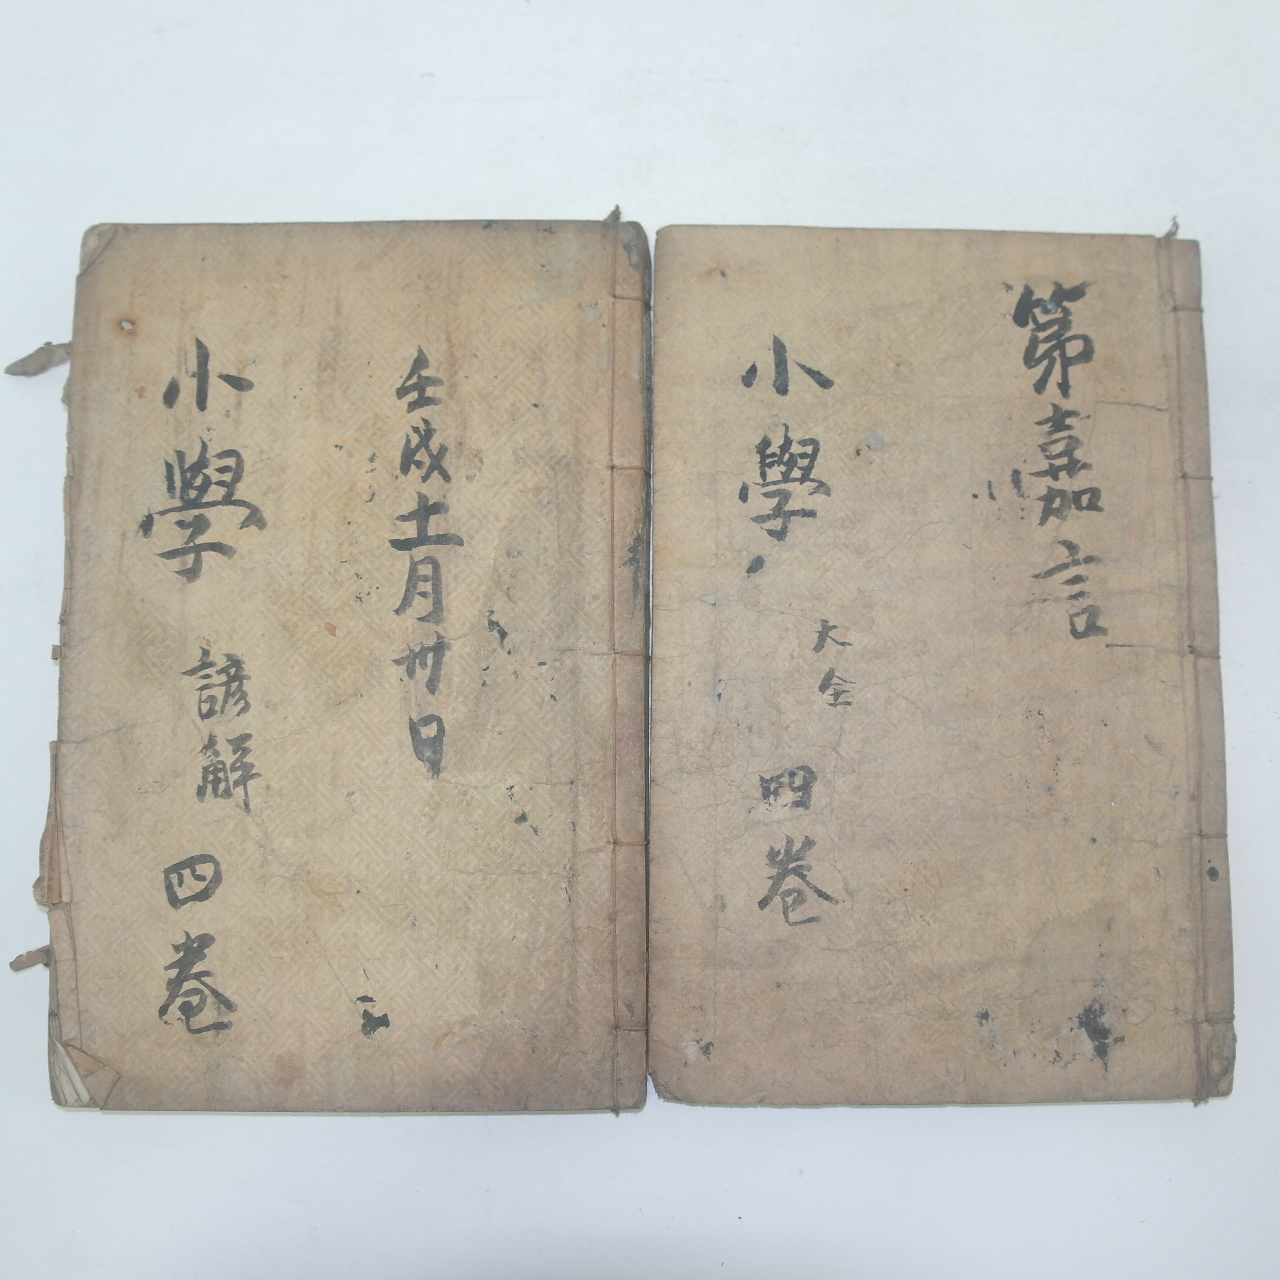 第嘉言
小學 大全 四卷
壬戌十一月卅日
小學 諺解 四卷